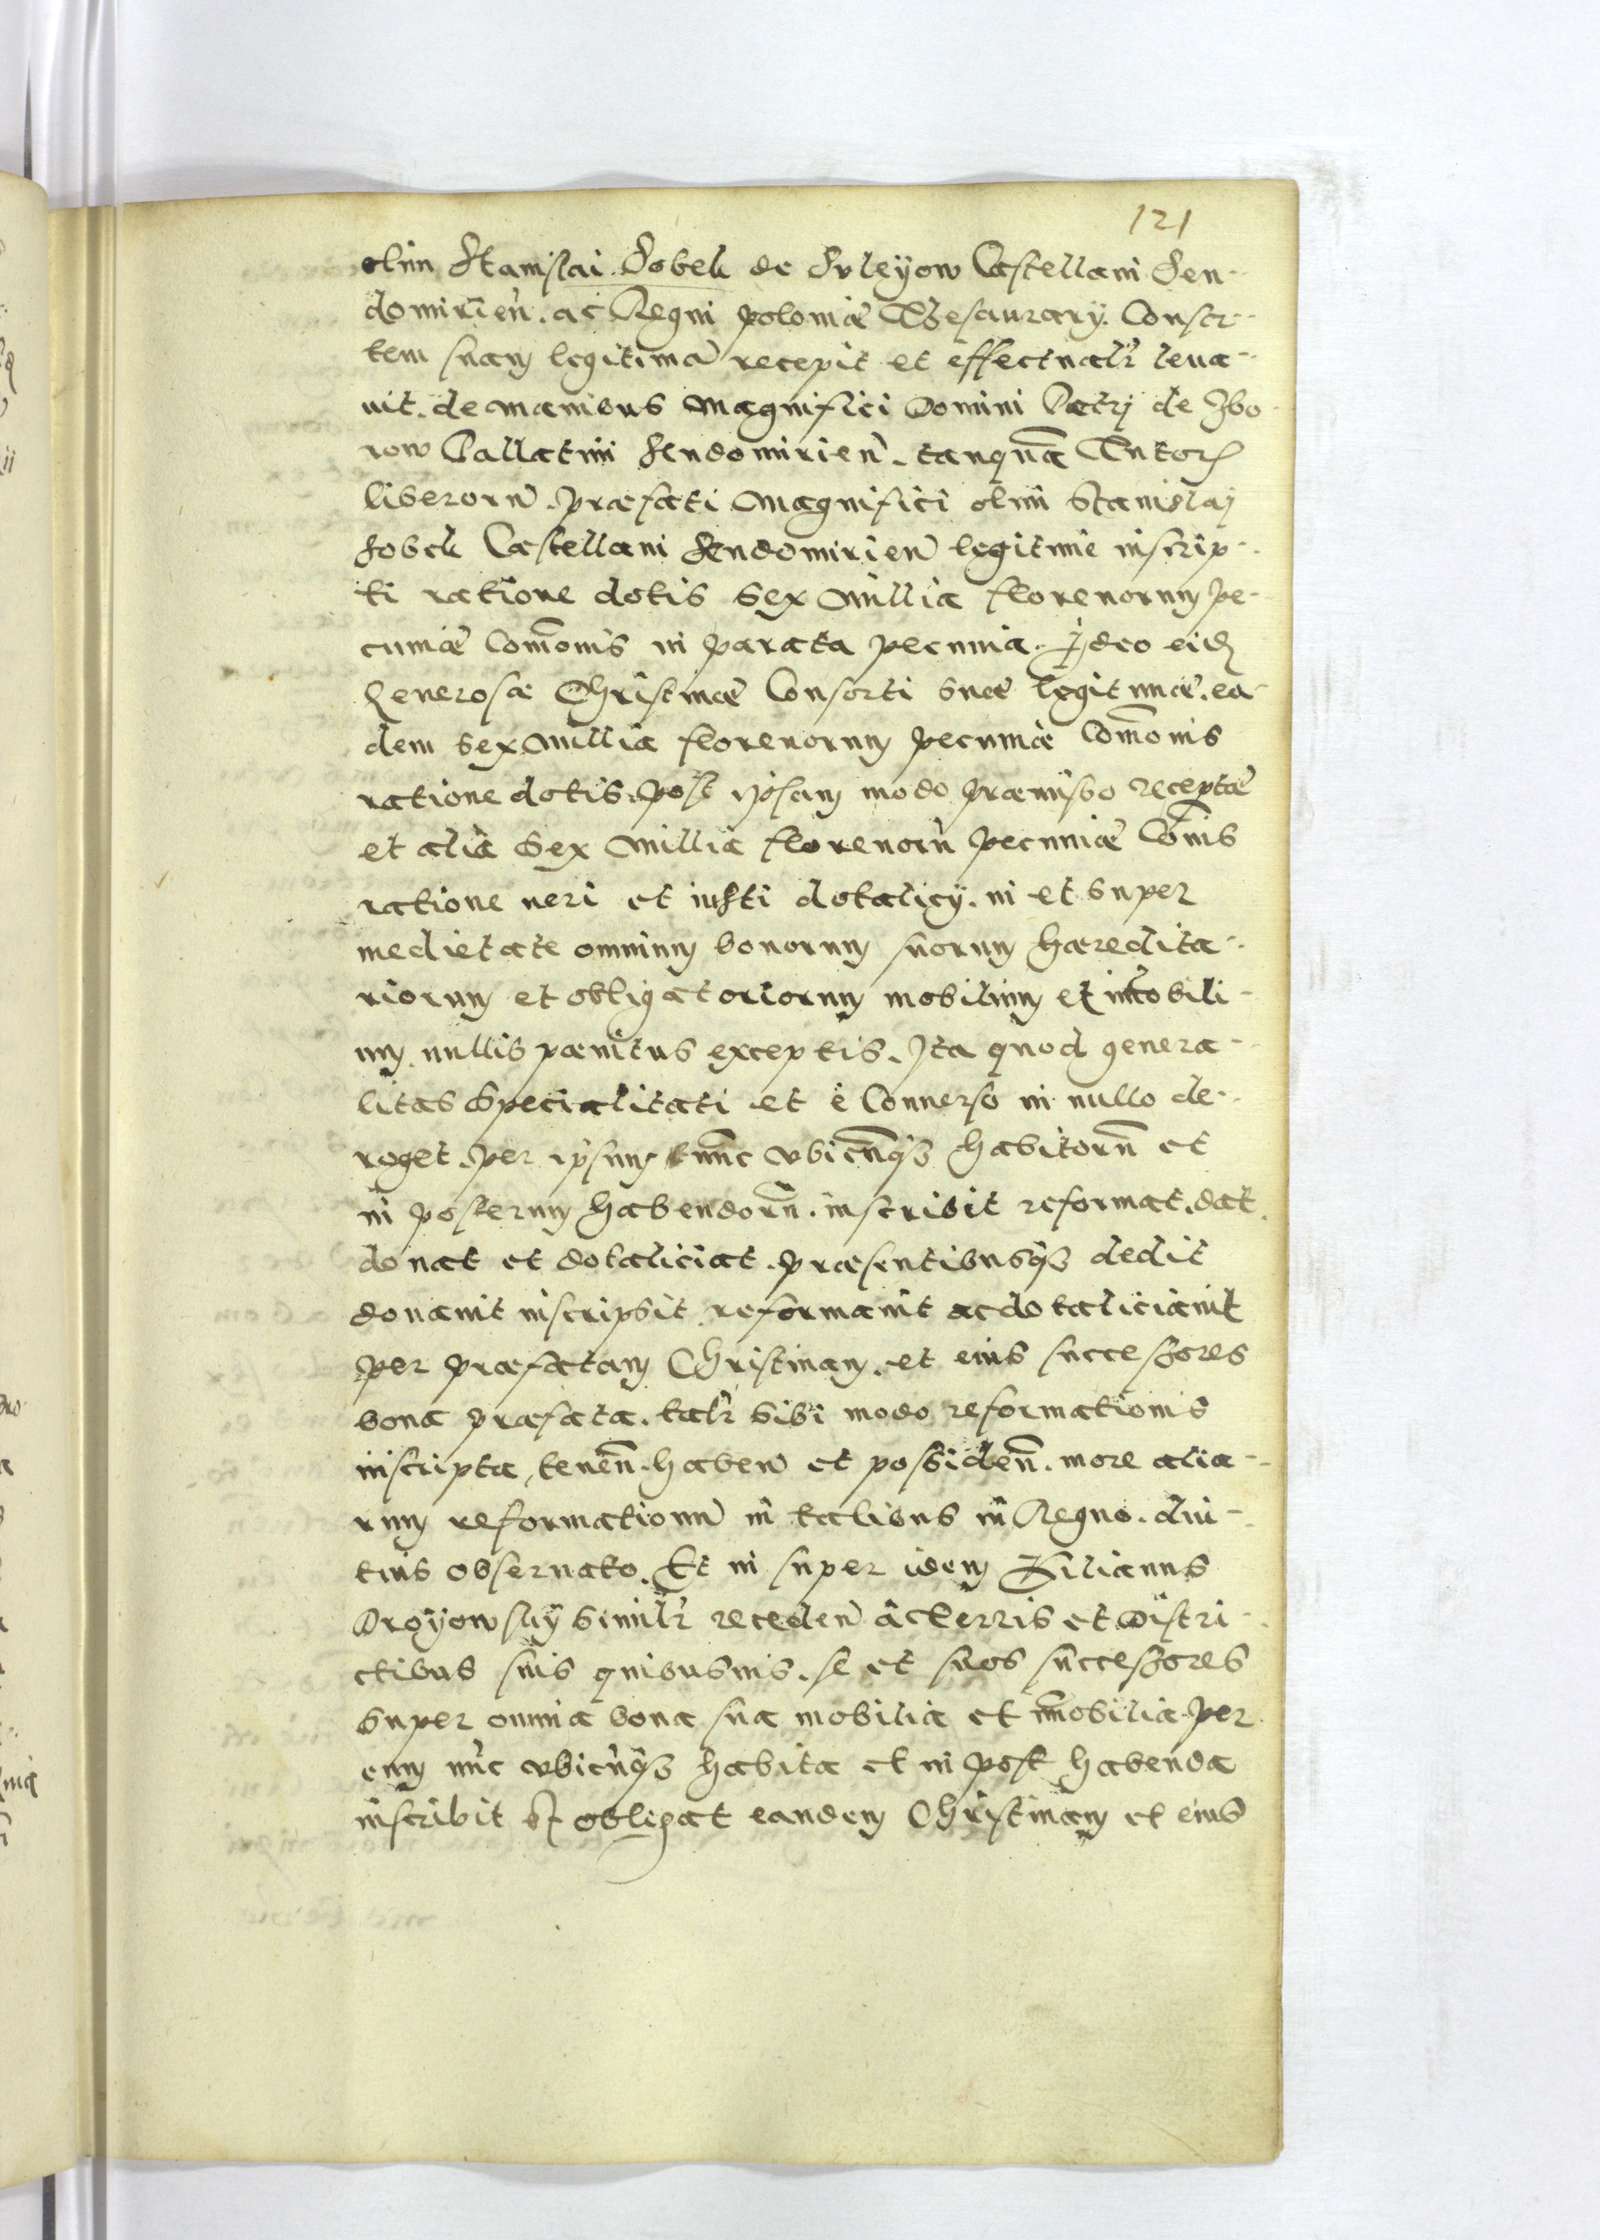 121
olim Stanislai Sobek de Suleyow Castellani Sen-
domirien̄. ac Regni poloniæ Thesaurary. Consor-
tem suam legitimā recepit et effectualr̄ leua-
uit. de manibus Magnifici Domini Petri de Zbo
row Pallatini Sendomirien̄. tanquā Tutoris
liberorū. præfati Magnifici olim Stanislaj
Sobek Castellani Sendomirien̄ legitime inscrip-
ti ratione dotis Sex Millia florenorum pe-
cuniæ Com̄onis in parata pecunia. Ideo eid
Generosæ Christinæ Consorti suæ legitimæ. ea-
dem Sex Millia florenorum pecuniæ Com̄onis
ratione dotis. post ipsam modo præmisso receptæ
et alia Sex Millia florenorū pecuniæ Cōnis
ratione veri et iusti dotalicy. in et super
medietate omnium bonorum suorum hæredita-
riorum et obligatoriorum mobilium et im̄obili-
um. nullis pænitus exceptis. Ita quod genera-
litas Specialitati et è Conuerso in nullo de-
roget. per ipsum tunc vbicūqȝ habitorū et
in posterum habendorū. inscribit reformat. dat.
donat et dotaliciat. præsentibusqȝ dedit
donauit inscripsit reformauit ac dotaliciauit
per præfatam Christinam. et eius successores
bona præfata. talr̄ sibi modo reformationis
inscripta, tenen̄. haben̄ et possiden̄. more alia-
rum reformationū in talibus in Regno. diu-
tius obseruato. Et in super idem Kilianus
Droyowsky similr̄ receden̄ à terris et distri-
ctibus suis quibusuis. se et suos successores
super omnia bona sua mobilia et im̄obilia per
eum nūc vbicūqȝ habita et in post habenda
inscribit et obligat eandem Christinam et eius